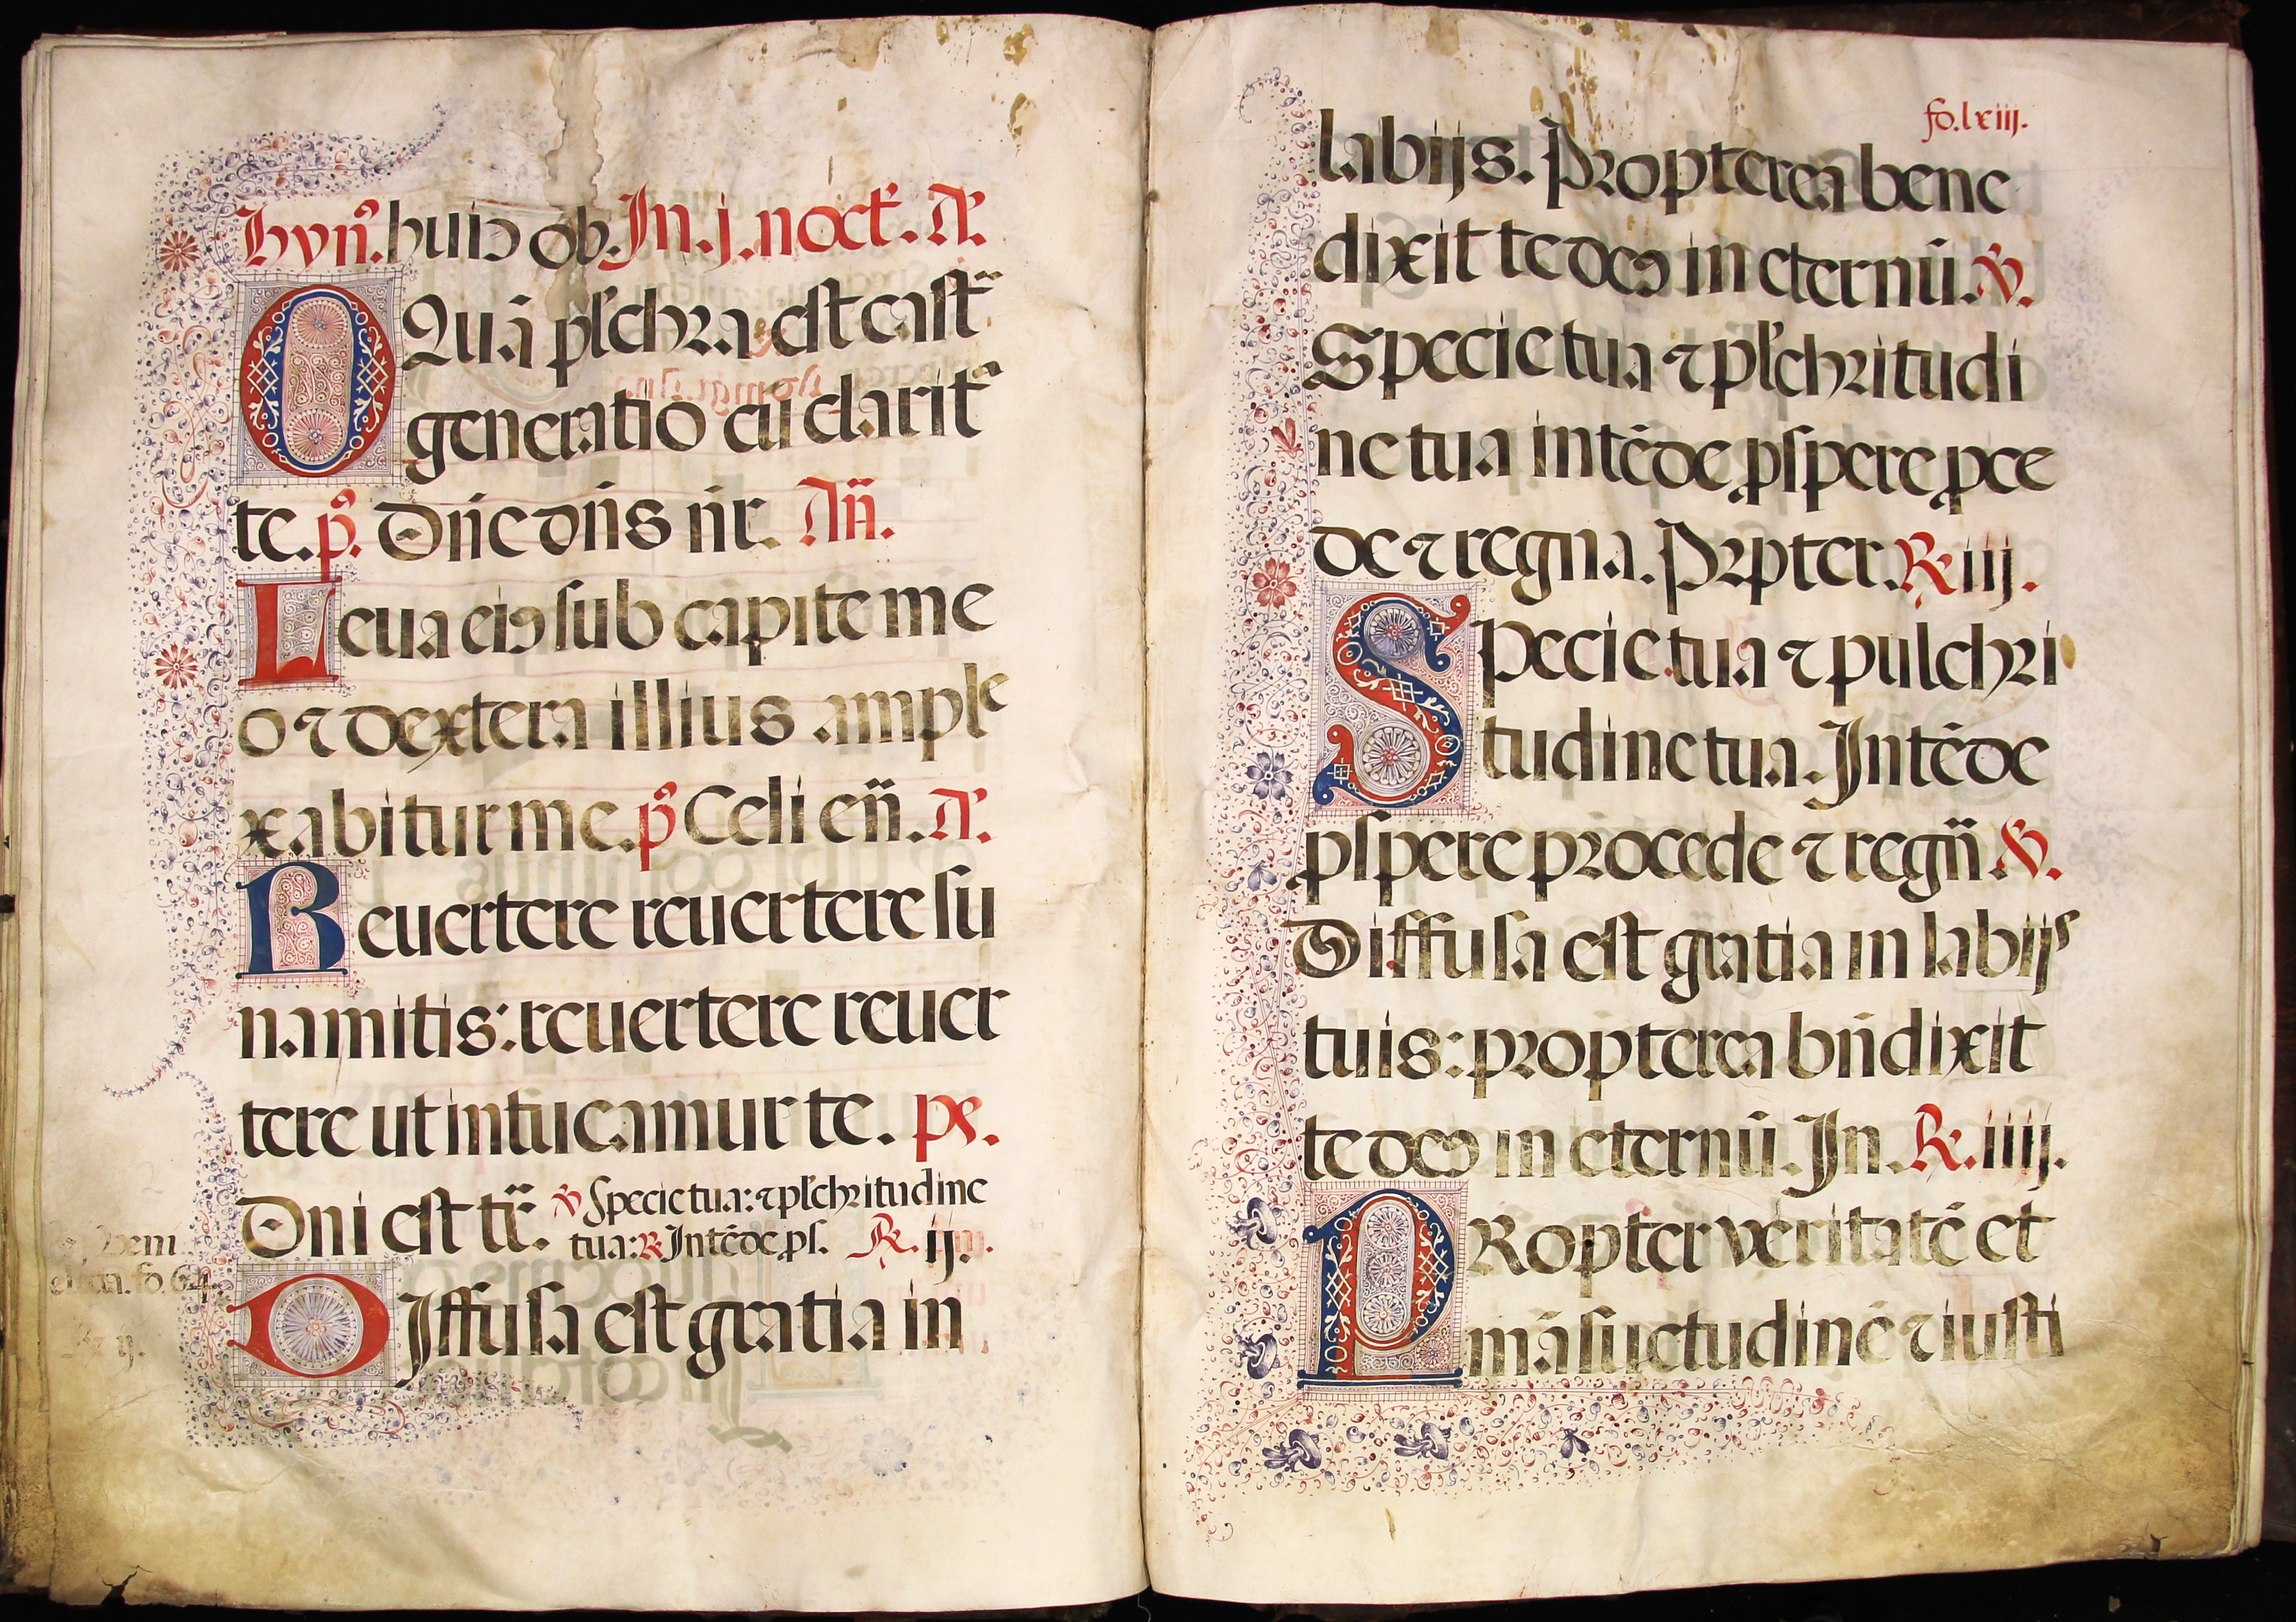 hyñ. huiꝰ ob. In. j. noct̃. A͛.
O Quã pl̃chra est cast̃
generatio cũ clarit̃
te. p̃. Dñe dñs nr̃. Añ.
Leua eiꝰ sub capite me
o ⁊ dextera illius ample
xabitur me. p̃ Celi eñ. A͛.
Reuertere reuertere su
namitis: reuertere reuer
tere ut intueamur te. ps.
Dni est tr̃. ℣ Specie tua: ⁊ pl̃chritudine
tua: ℟ Intẽde ꝓs. ℟. ij.
DIffusa est gratia in
fo. lxiij.
labijs. Propterea bene
dixit te deꝰ in eternũ. ℣.
Specie tua ⁊ pl̃chritudi
ne tua intẽde ꝓspere ꝓce
de ⁊ regna. Prpter. ℟ iij.
SPecie tua ⁊ pulchri
tudine tua. Intẽde
ꝓspere procede ⁊ regñ ℣.
Diffusa est gratia in labijs
tuis: propterea bñdixit
te deꝰ in eternũ. In. ℟. iiij.
PRopter veritatẽ et
mãsuetudinẽ ⁊ iusti